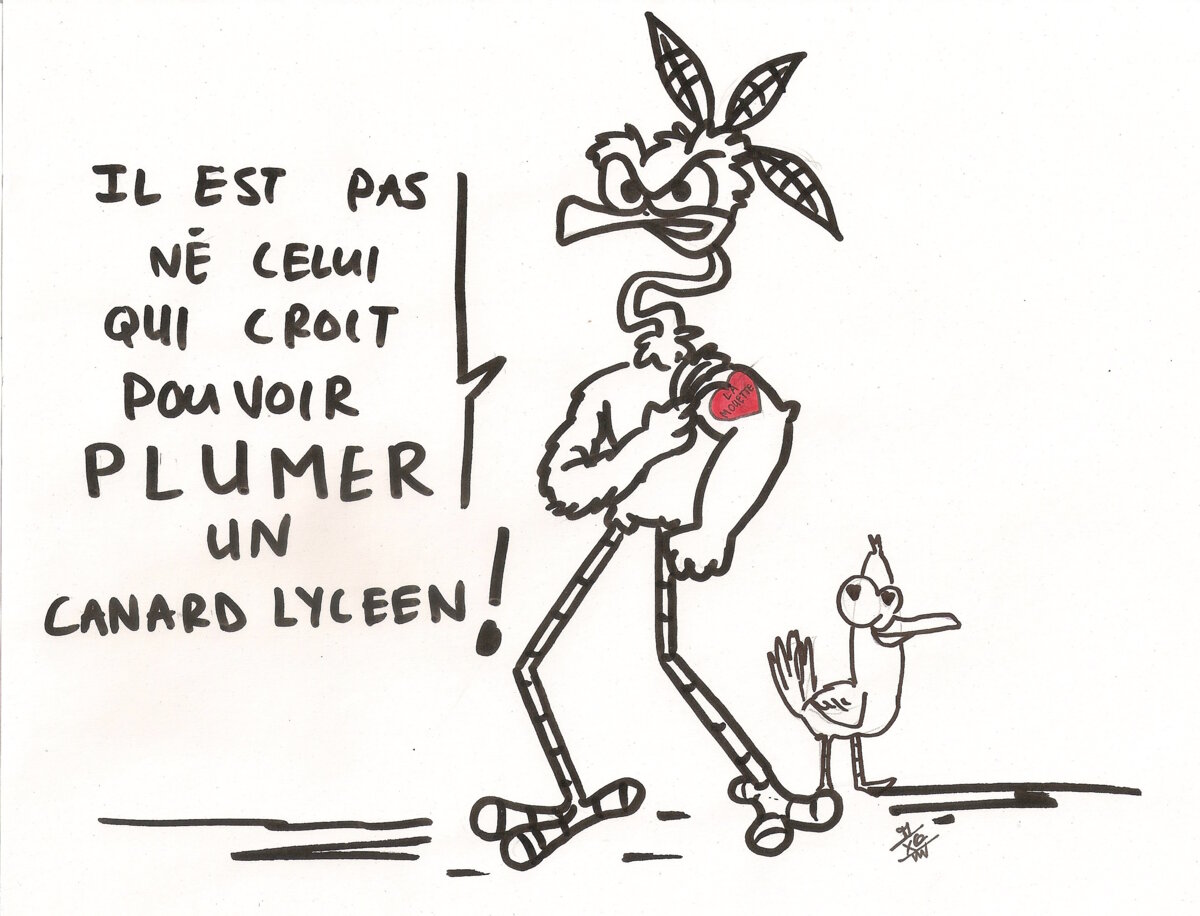 IL EST PAS
NÉ CELUI
QUI CROIT
POUVOIR
PLUMER
UN
CANARD LYCEEN !
LA
MOUETTE